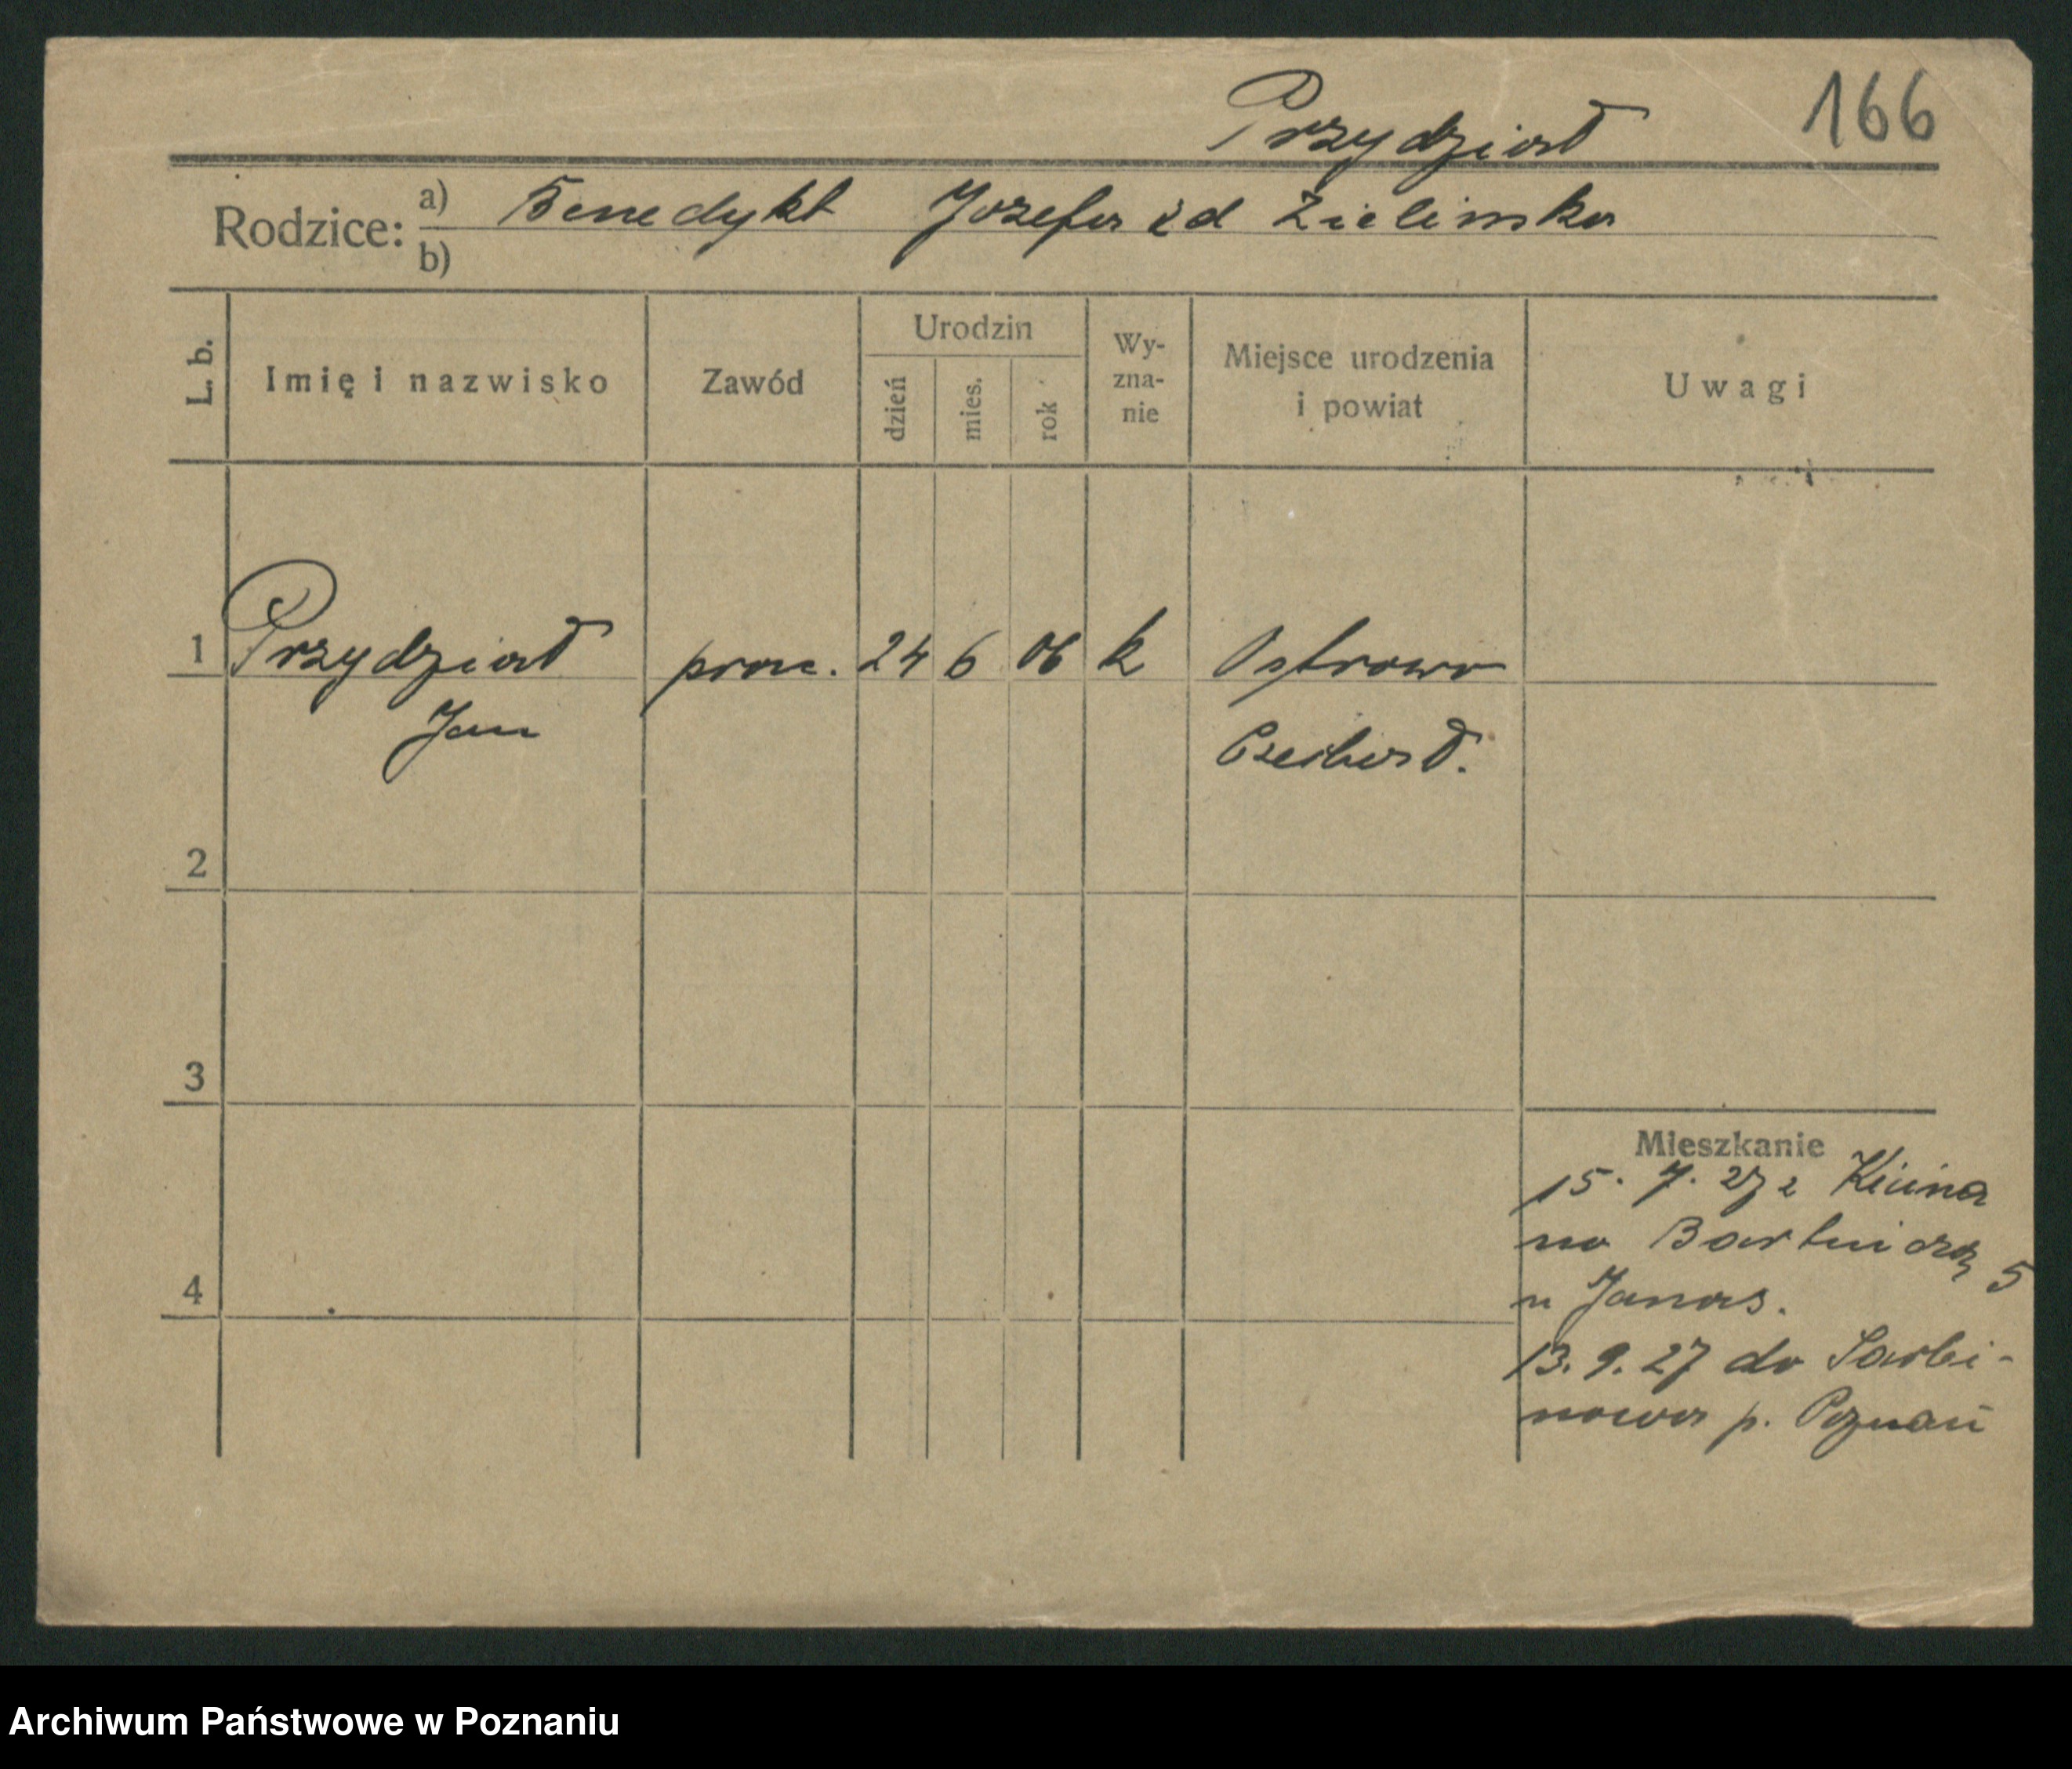 Przydział 166
Rodzice: a) Benedykt Józefa zd Zielinska
b)
L. b. Imię i nazwisko Zawód Urodzin dzień mies. rok Wy-zna-nie Miejsce urodzenia i powiat Uwagi
1 Przydział prac. 24 6 06 k Ostrowo
Jan
2
3
4
Mieszkanie
15. 7. 27 z Kicina
na Bartniczą 5
u Janas.
13. 9. 27 do Sarbi-
nowa p. Poznań
Archiwum Państwowe w Poznaniu